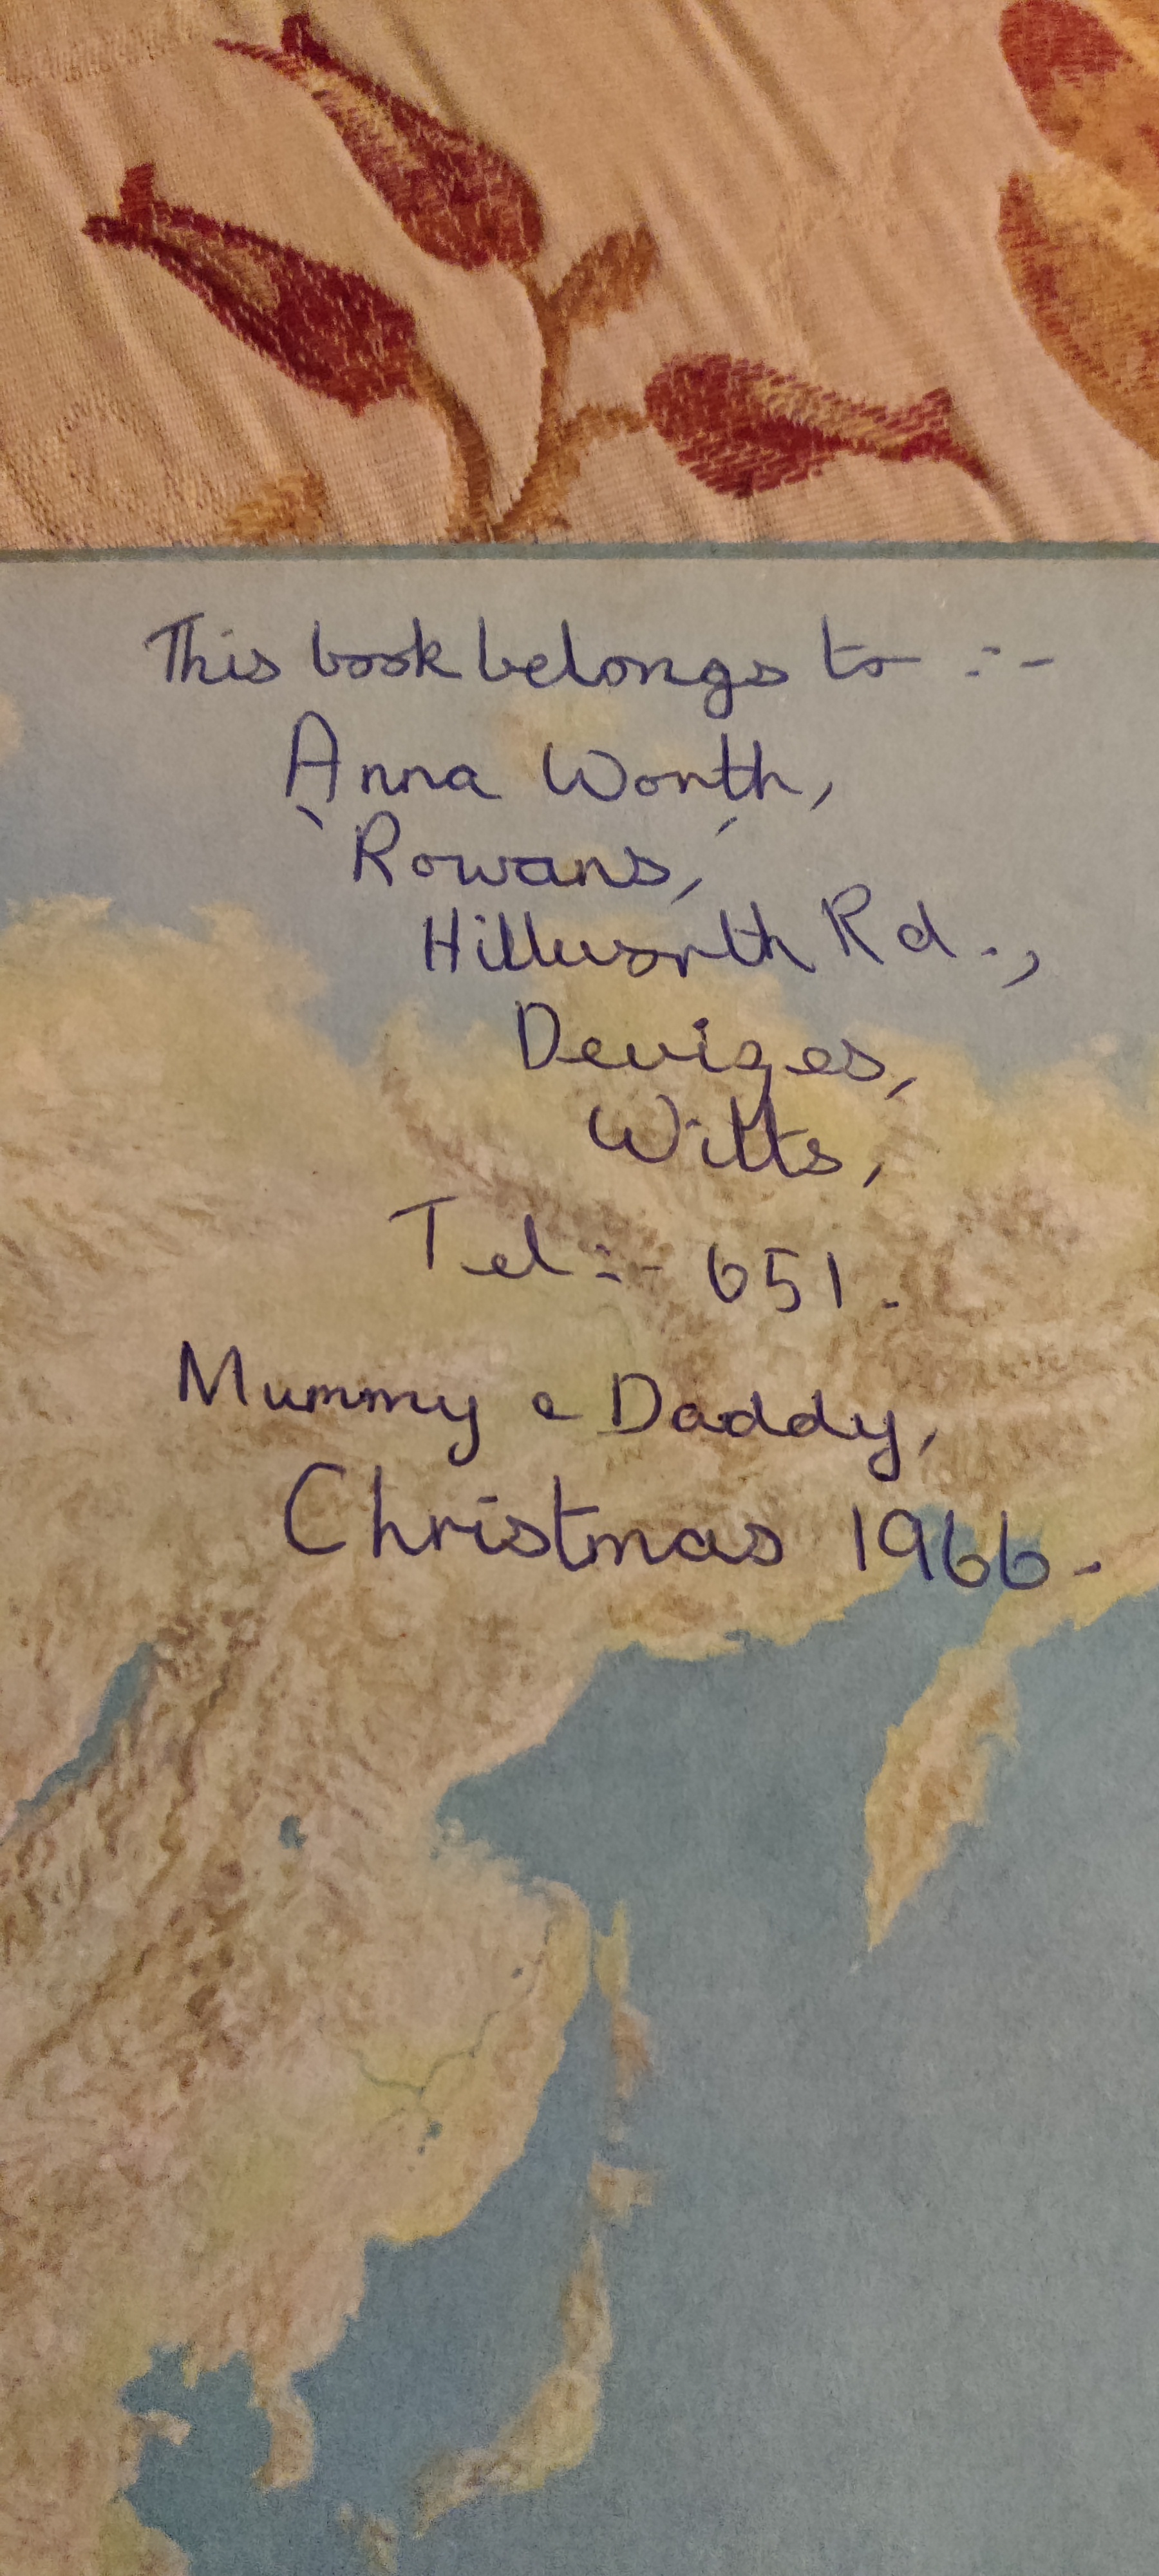 This book belongs to :-
Anna Worth,
'Rowans,'
Hillworth Rd.,
Devizes,
Wilts,
Tel :- 651.
Mummy & Daddy,
Christmas 1966.